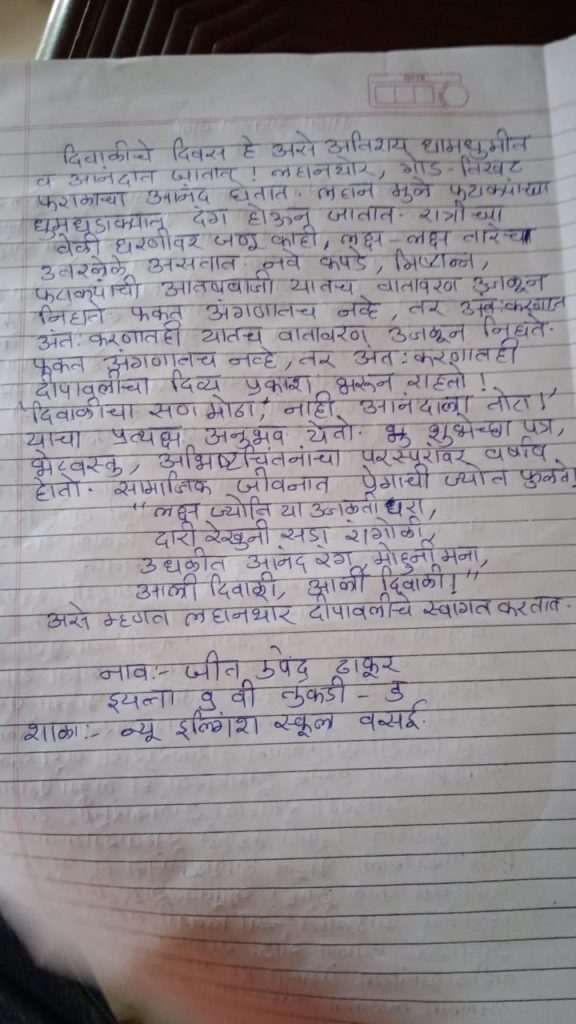 दिवाळीचे दिवस हे असे अतिशय धामधुमीत
व आनंदात जातात! लहानथोर, गोड-तिखट
फराळाचा आनंद घेतात. लहान मुले फटाक्यांच्या
धुमधडाक्यात दंग होऊन जातात. रात्रीच्या
वेळी धरणीवर जणू काही, लक्ष-लक्ष तारेच
उतरलेले असतात. नवे कपडे, मिष्टान्न,
फटाक्यांची आतषबाजी यातच वातावरण उजळून
निघते फक्त अंगणातच नव्हे, तर अंत:करणात
अंत:करणातही यातच वातावरण उजळून निघते.
फक्त अंगणातच नव्हे, तर अंत:करणातही
दीपावलीचा दिव्य प्रकाश भरून राहतो!
'दिवाळीचा सण मोठा, नाही आनंदाला तोटा!'
याचा प्रत्यक्ष अनुभव येतो. शुभेच्छा पत्र,
भेटवस्तू, अभिष्टचिंतनांचा परस्परांवर वर्षाव
होतो. सामाजिक जीवनात प्रेमाची ज्योत फुलते!
"लक्ष ज्योति या उजळती धरा,
दारी रेखुनी सडा रांगोळी,
उधळीत आनंद रंग, मोहुनी मना,
आली दिवाळी, आली दिवाळी!"
असे म्हणत लहानथोर दीपावलीचे स्वागत करतात.
नाव:- जीत उपेंद्र ठाकूर
इयत्ता वी तुकडी - ड
शाळा:- न्यू इंग्लिश स्कूल वसई.